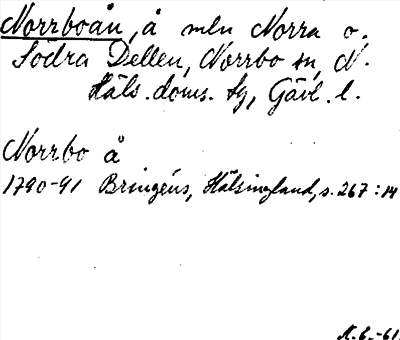 Norrboån, å mln Norra o.
Södra Dellen, Norrbo sn, N.
Häls. doms. tg, Gävl. l.
Norrbo å
1790-91 Bringéus, Hälsingland, s. 267:14
N.E.-61.